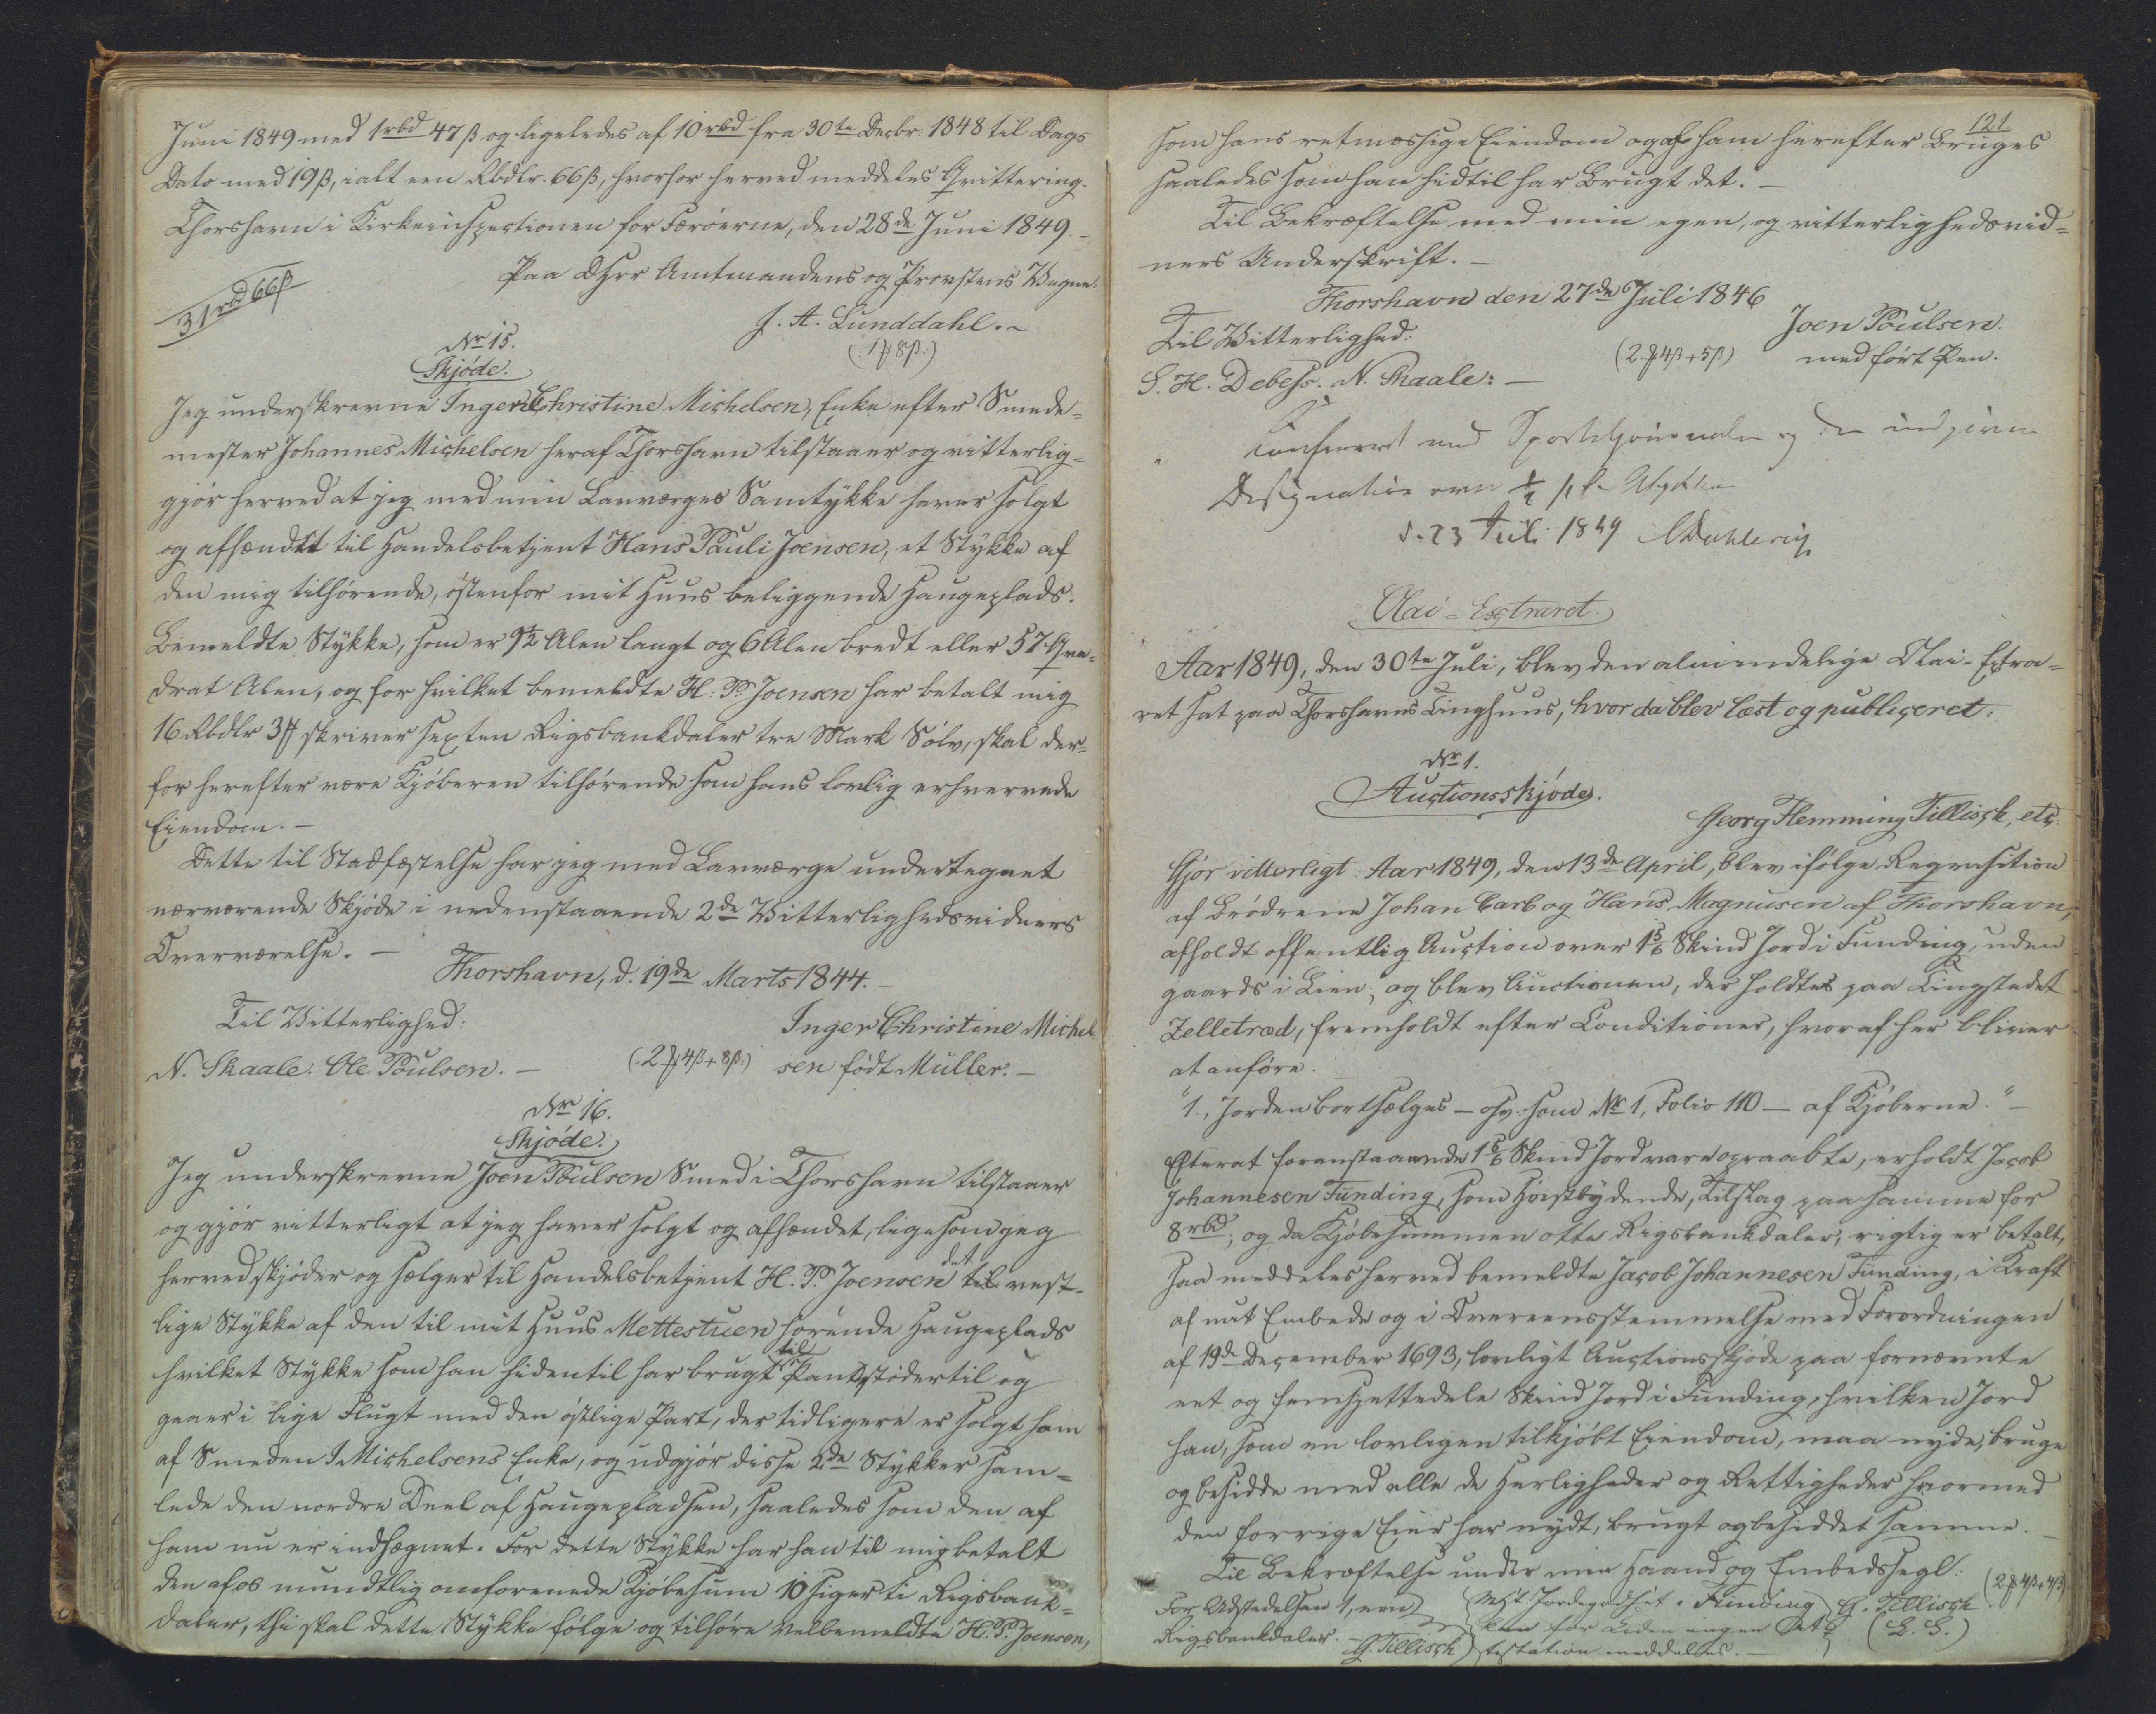 Juni 1849 med 1rbd 47 ß og ligeledes af 10 rbd fra 30te Decbr. 1848 til Dags
Dato med 19 ß, ialt een Rbdlr. 66 ß, hvorfor herved meddeles Qvittering.
Thorshavn i Kirkeinspectionen for Færöerne, den 28de Juni 1849.
Paa DHrr Amtmandens og Provstens Vegne.
31 rbd 66 ß
J. A. Lunddahl.
(: 1 ℔ 8 ß :)
Nr 15.
Skjöde.
Jeg underskrevne Inger Christine Michelsen, Enke efter Smede-
mester Johannes Michelsen heraf Thorshavn tilstaaer og vitterlig-
gjör herved at jeg med min Lavværges Samtykke haver solgt
og afhændet til Handelsbetjent Hans Pauli Joensen, et Stykke af
den mig tilhörende, östenfor mit Huus beliggende Haugeplads.
Bemeldte Stykke, som er 9½ Alen langt og 6 Alen bredt eller 57 Qva-
drat Alen, og for hvilket bemeldte H. P. Joensen har betalt mig
16 Rbdlr 3 ℔ skriver sexten Rigsbankdaler tre Mark Sölv, skal der-
for herefter være Kjöberen tilhörende som hans lovlig erhvervede
Eiendom. –
Dette til Stadfæstelse har jeg med Lavværge undertegnet
nærværende Skjöde i nedenstaaende 2de Vitterlighedsvidners
Overværelse. –
Thorshavn, d. 19de Marts 1844. –
Til Vitterlighed:
Inger Christine Michel
N. Skaale. Ole Poulsen. –
(: 2 ℔ 4 ß + 8 ß :)
sen født Müller. –
Nr 16.
Skjöde.
Jeg underskrevne Joen Poulsen Smed i Thorshavn tilstaaer
og gjör vitterligt at jeg haver solgt og afhændet, ligesom jeg
herved skjöder og sælger til Handelsbetjent H. P. Joensen det vest-
lige Stykke af den til mit Huus Mettestuen hörende Haugeplads
hvilket Stykke som han hidentil har brugt til Pant, støder til og
gaaer i lige Flugt med den östlige Part, der tidligere er solgt ham
af Smeden J. Michelsens Enke, og udgjör disse 2de Stykker sam-
lede den nordre Deel af Haugepladsen, saaledes som den af
ham nu er indhægnet. For dette Stykke har han til mig betalt
den af os mundtlig omforenede Kjöbesum 10 siger ti Rigsbank-
daler, thi skal dette Stykke fölge og tilhöre velbemeldte H. P. Joensen,
121.
som hans retmæssige Eiendom og af ham herefter bruges
saaledes som han hidtil har brugt det. –
Til Bekræftelse med min egen, og vitterlighedsvid-
ners Underskrift. –
Thorshavn den 27de Juli 1846
Til Vitterlighed:
Joen Poulsen.
(2 ℔ 4 ß + 5 ß)
med fört Pen.
S. H. Debess. N. Skaale: –
Confereret med Sporteljournalen og den indgivne
Designation over
d. 23 Juli 1849 Dahlerup
Olai-Extraret.
Aar 1849, den 30te Juli, blev den almindelige Olai-Extra-
ret sat paa Thorshavns Tinghuus, hvor da blev læst og publiceret:
Nr 1.
Auctionsskjöde.
Georg Flemming Tillisch, etc.
Gjör vitterligt: Aar 1849, den 13de April, blev ifölge Reqvisition
af Brödrene Johan Carl og Hans Magnusen af Thorshavn,
afholdt offentlig Auction over 1 5/6 Skind Jord i Funding, uden
gaards i Lien; og blev Auctionen, der holdtes paa Tingstedet
Zelletræd, fremholdt efter Conditioner, hvoraf her bliver
at anföre.
"1., Jorden bortsælges – osv. som Nr 1, Folio 110 – af Kjöberne." –
Efterat foranstaaende 1 5/6 Skind Jord vare opraabte, erholdt Jacob
Johannesen Funding, som höistbydende, Tilslag paa samme for
8 rbd; og da Kjöbesummen otte Rigsbankdaler, rigtig er betalt,
saa meddeles herved bemeldte Jacob Johannesen Funding, i Kraft
af mit Embede og i Overeensstemmelse med Forordningen
af 19de December 1693, lovligt Auctionsskjöde paa fornævnte
eet og femsjettedele Skind Jord i Funding, hvilken Jord
han, som en lovligen tilkjöbt Eiendom, maa nyde, bruge
og besidde med alle de Herligheder og Rettigheder hvormed
den forrige Eier har nydt, brugt og besiddet samme. –
Til Bekræftelse under min Haand og Embedssegl:
(2 ℔ 4 ß + 4 ß)
For Udstedelsen 1, een
Rigsbankdaler. G. Tillisch
Jordegodset i Funding
kan for Tiden ingen At-
testation meddeles. –
G. Tillisch
(L. S.)